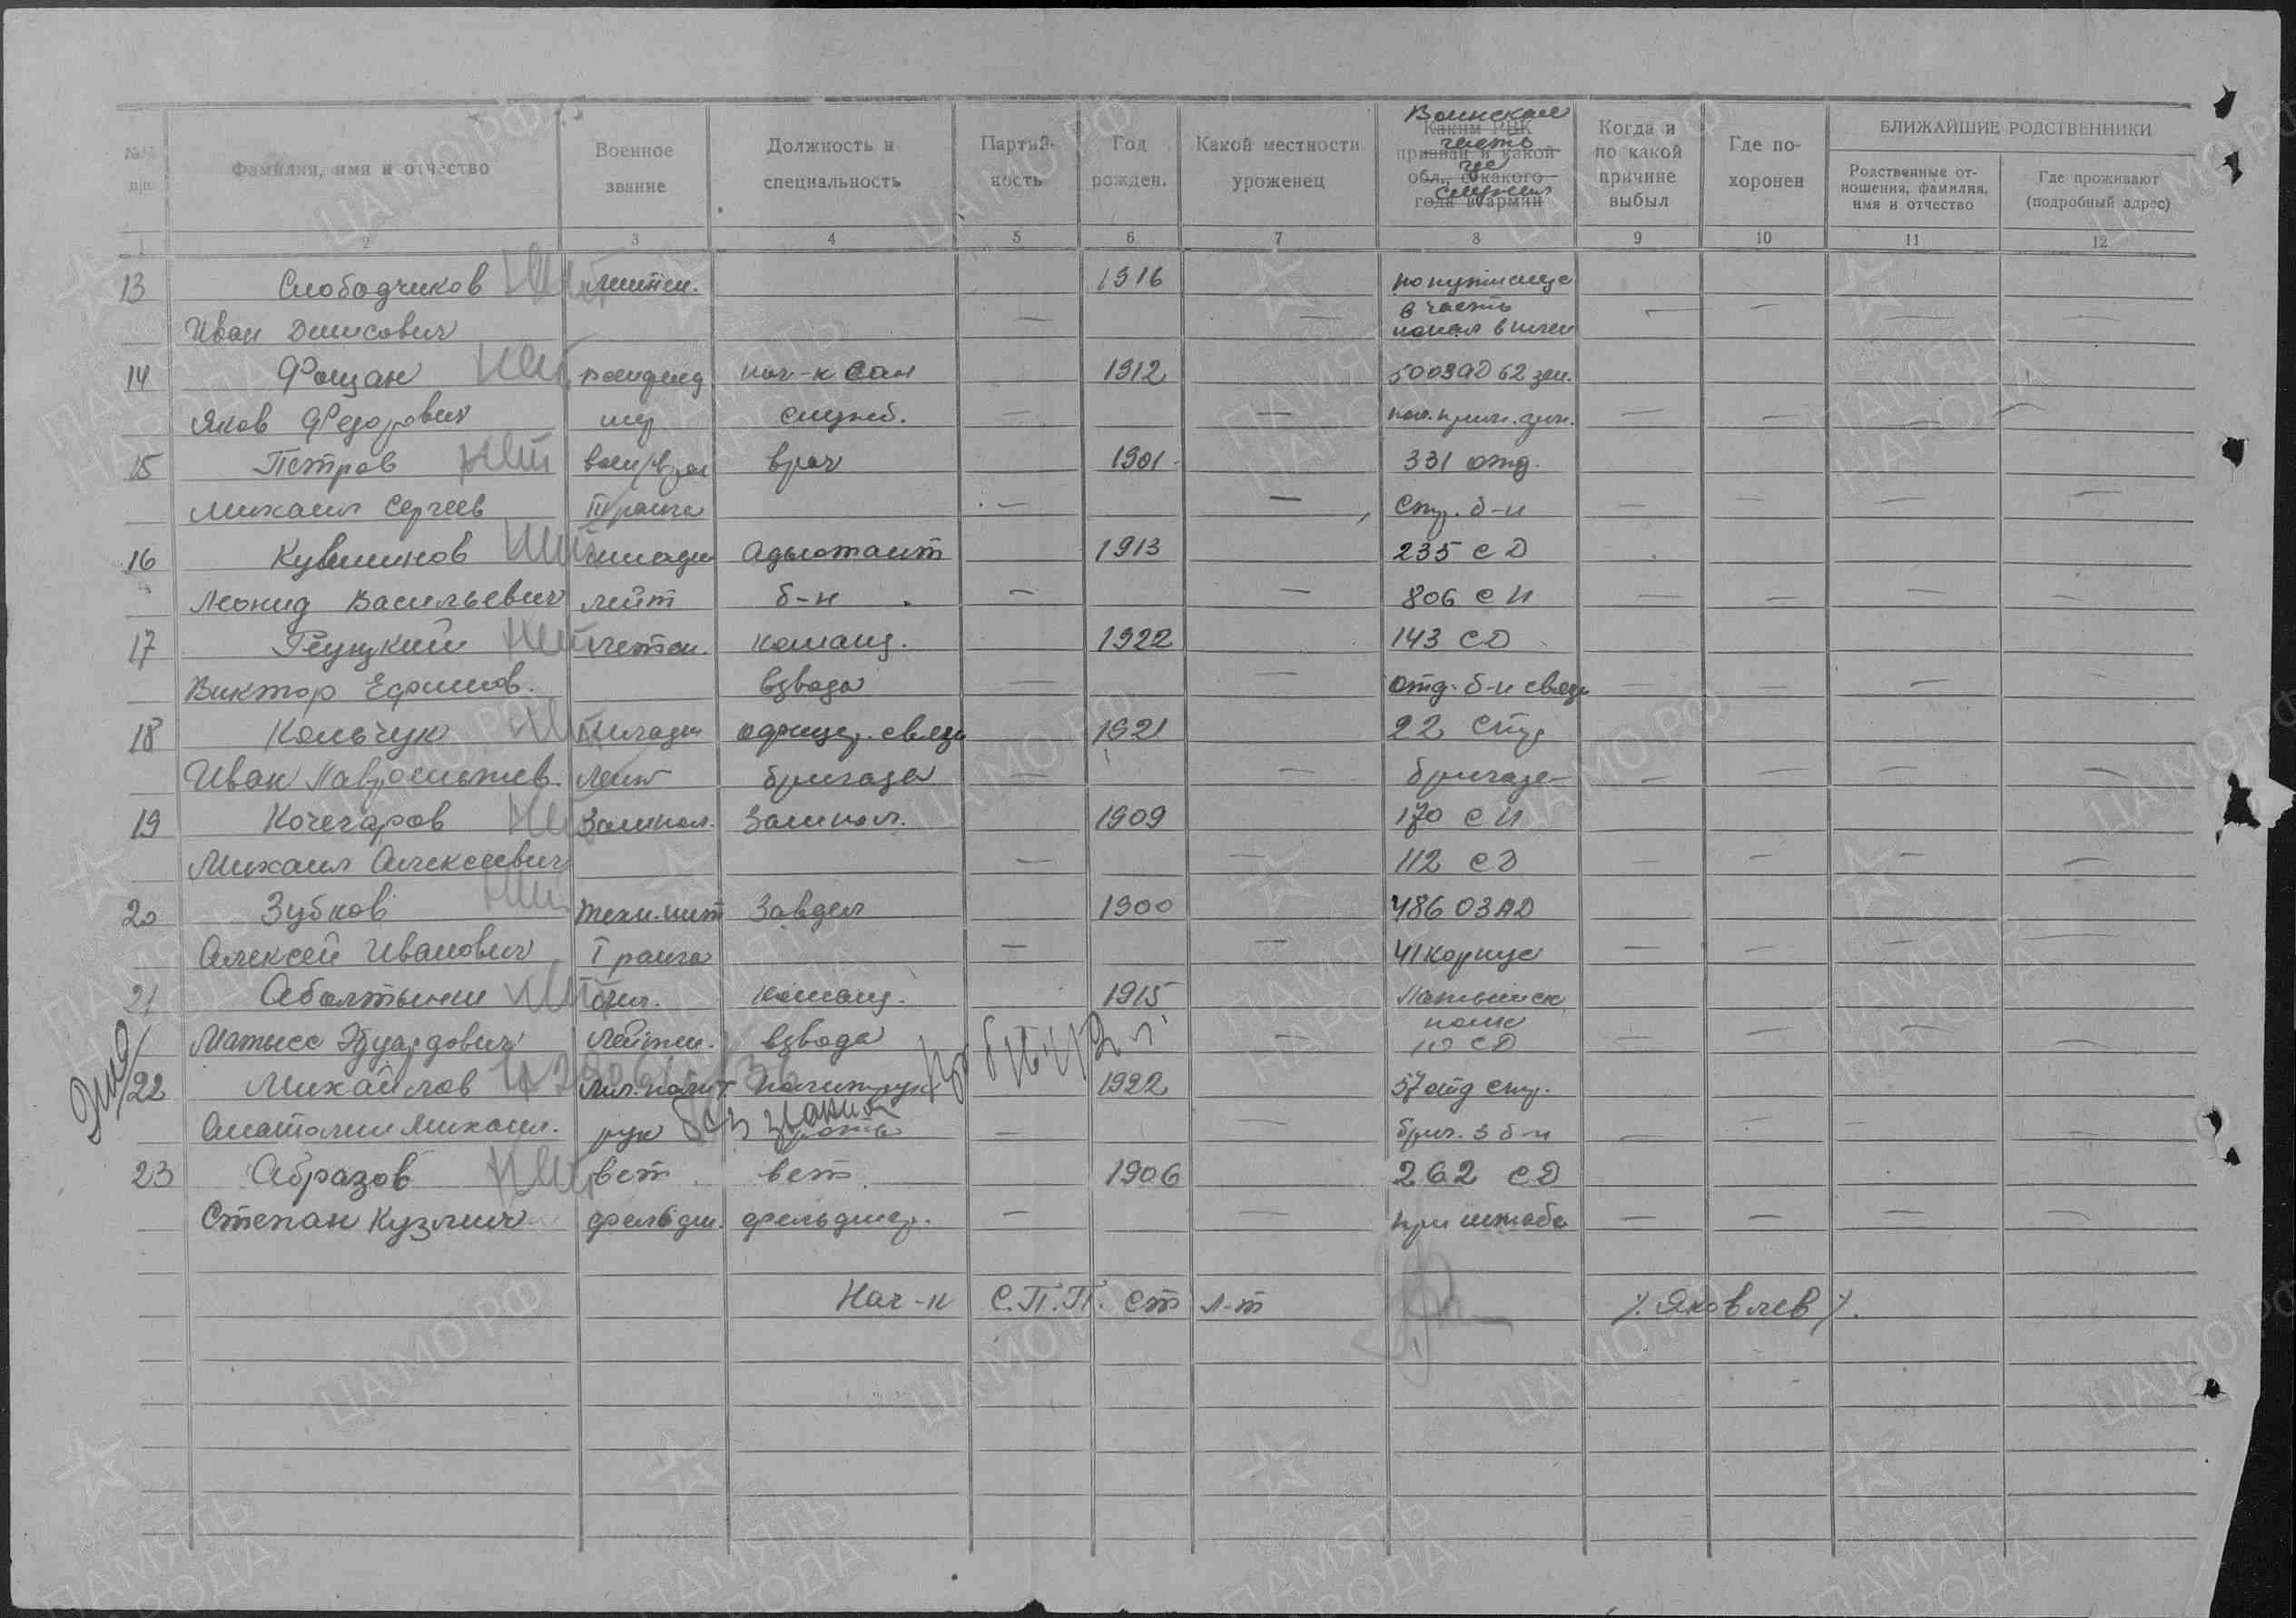 №№ п/п. | Фамилия, имя и отчество | Военное звание | Должность и специальность | Партийность | Год рожден. | Какой местности уроженец | Каким РВК призван и какой обл., с какого года в армии | Когда и по какой причине выбыл | Где похоронен | БЛИЖАЙШИЕ РОДСТВЕННИКИ
Воинская часть где служил
Родственные отношения, фамилия, имя и отчество | Где проживают (подробный адрес)
1 2 3 4 5 6 7 8 9 10 11 12
13 Слободчиков нет лейтен. 1916 по пути еще
в часть
Иван Денисович — — попал в плен — —
14 Фощан нет военфельд нач-к сан 1912 500 ЗАД 62 зен.
Яков Федорович шер служб. — — — — — —
15 Петров нет воен/врач врач 1901 331 отд.
Михаил Сергеев III ранга — — Стр. б-н — — — —
16 Кувшинов нет младш Адьютант 1913 235 СД
Леонид Васильевич лейт б-н — — 806 СП — — — —
17 Реуцкий нет летен. команд. 1922 143 СД
Виктор Ефимов. взвода — — отд. б-н связи — — — —
18 Кольчук нет младш офицер. связи 1921 22 Стр
Иван лейт бригада — — бригаде — — — —
19 Кочегаров нет Зампол. Зампол. 1909 170 СП
Михаил Алексеевич — — 112 СД — — — —
20 Зубков нет техн.инт Завдел 1900 486 ОЗАД
Алексей Иванович I ранга — — 41 корпус — — — —
21 Аболтыньш нет мл. команд. 1915 Латышск
Матысс Эдуардович лейтен. взвода — полк — — — —
СД
22 Михайлов мл. полит политрук 1922 57 отд стр.
без звания
Анатолий Михаил. рук роты — — бриг. 3 б-н — — — —
23 Абразов нет вет. вет. 1906 262 СД
Степан Кузмич фельдш. фельдшер. — — при штабе — — — —
Нач-к С.П.П. ст л-т /. Яковлев /.
ЦАМО РФ
ПАМЯТЬ НАРОДА